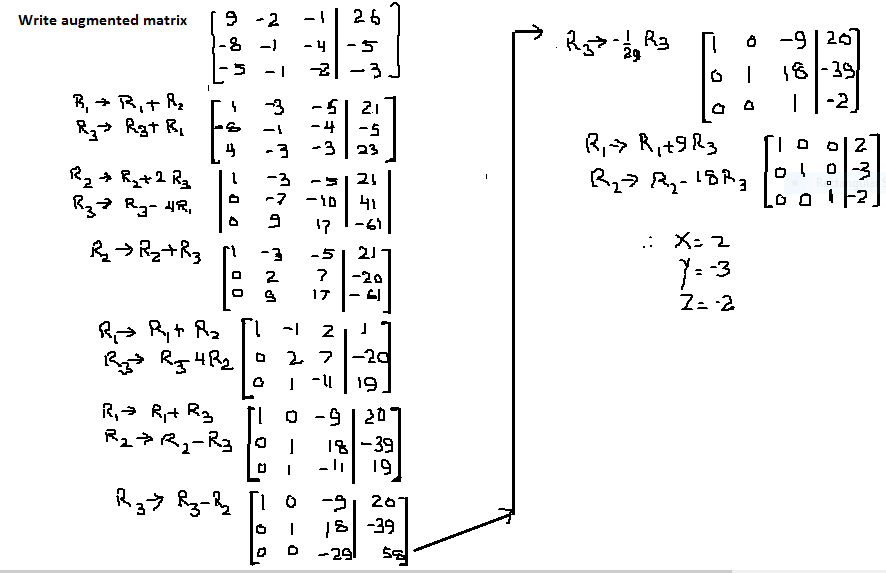 Write augmented matrix
[ 9 -2 -1 | 26 ]
[ -8 -1 -4 | -5 ]
[ -5 -1 -2 | -3 ]
R₁→ R₁+R₂ [ 1 -3 -5 | 21 ]
R₃→ R₃+R₁ [ -8 -1 -4 | -5 ]
[ 4 -3 -3 | 23 ]
R₂→ R₂+2R₃ [ 1 -3 -5 | 21 ]
R₃→ R₃-4R₁ [ 0 -7 -10 | 41 ]
[ 0 9 17 | -61 ]
R₂→R₂+R₃ [ 1 -3 -5 | 21 ]
[ 0 2 7 | -20 ]
[ 0 9 17 | -61 ]
R₁→ R₁+R₂ [ 1 -1 2 | 1 ]
R₃→ R₃-4R₂ [ 0 2 7 | -20 ]
[ 0 1 -11 | 19 ]
R₁→ R₁+R₃ [ 1 0 -9 | 20 ]
R₂→R₂-R₃ [ 0 1 18 | -39 ]
[ 0 1 -11 | 19 ]
R₃→ R₃-R₂ [ 1 0 -9 | 20 ]
[ 0 1 18 | -39 ]
[ 0 0 -29 | 58 ]
R₃→-1/29 R₃ [ 1 0 -9 | 20 ]
[ 0 1 18 | -39 ]
[ 0 0 1 | -2 ]
R₁→ R₁+9R₃ [ 1 0 0 | 2 ]
R₂→ R₂-18R₃ [ 0 1 0 | -3 ]
[ 0 0 1 | -2 ]
∴ X=2
Y=-3
Z=-2